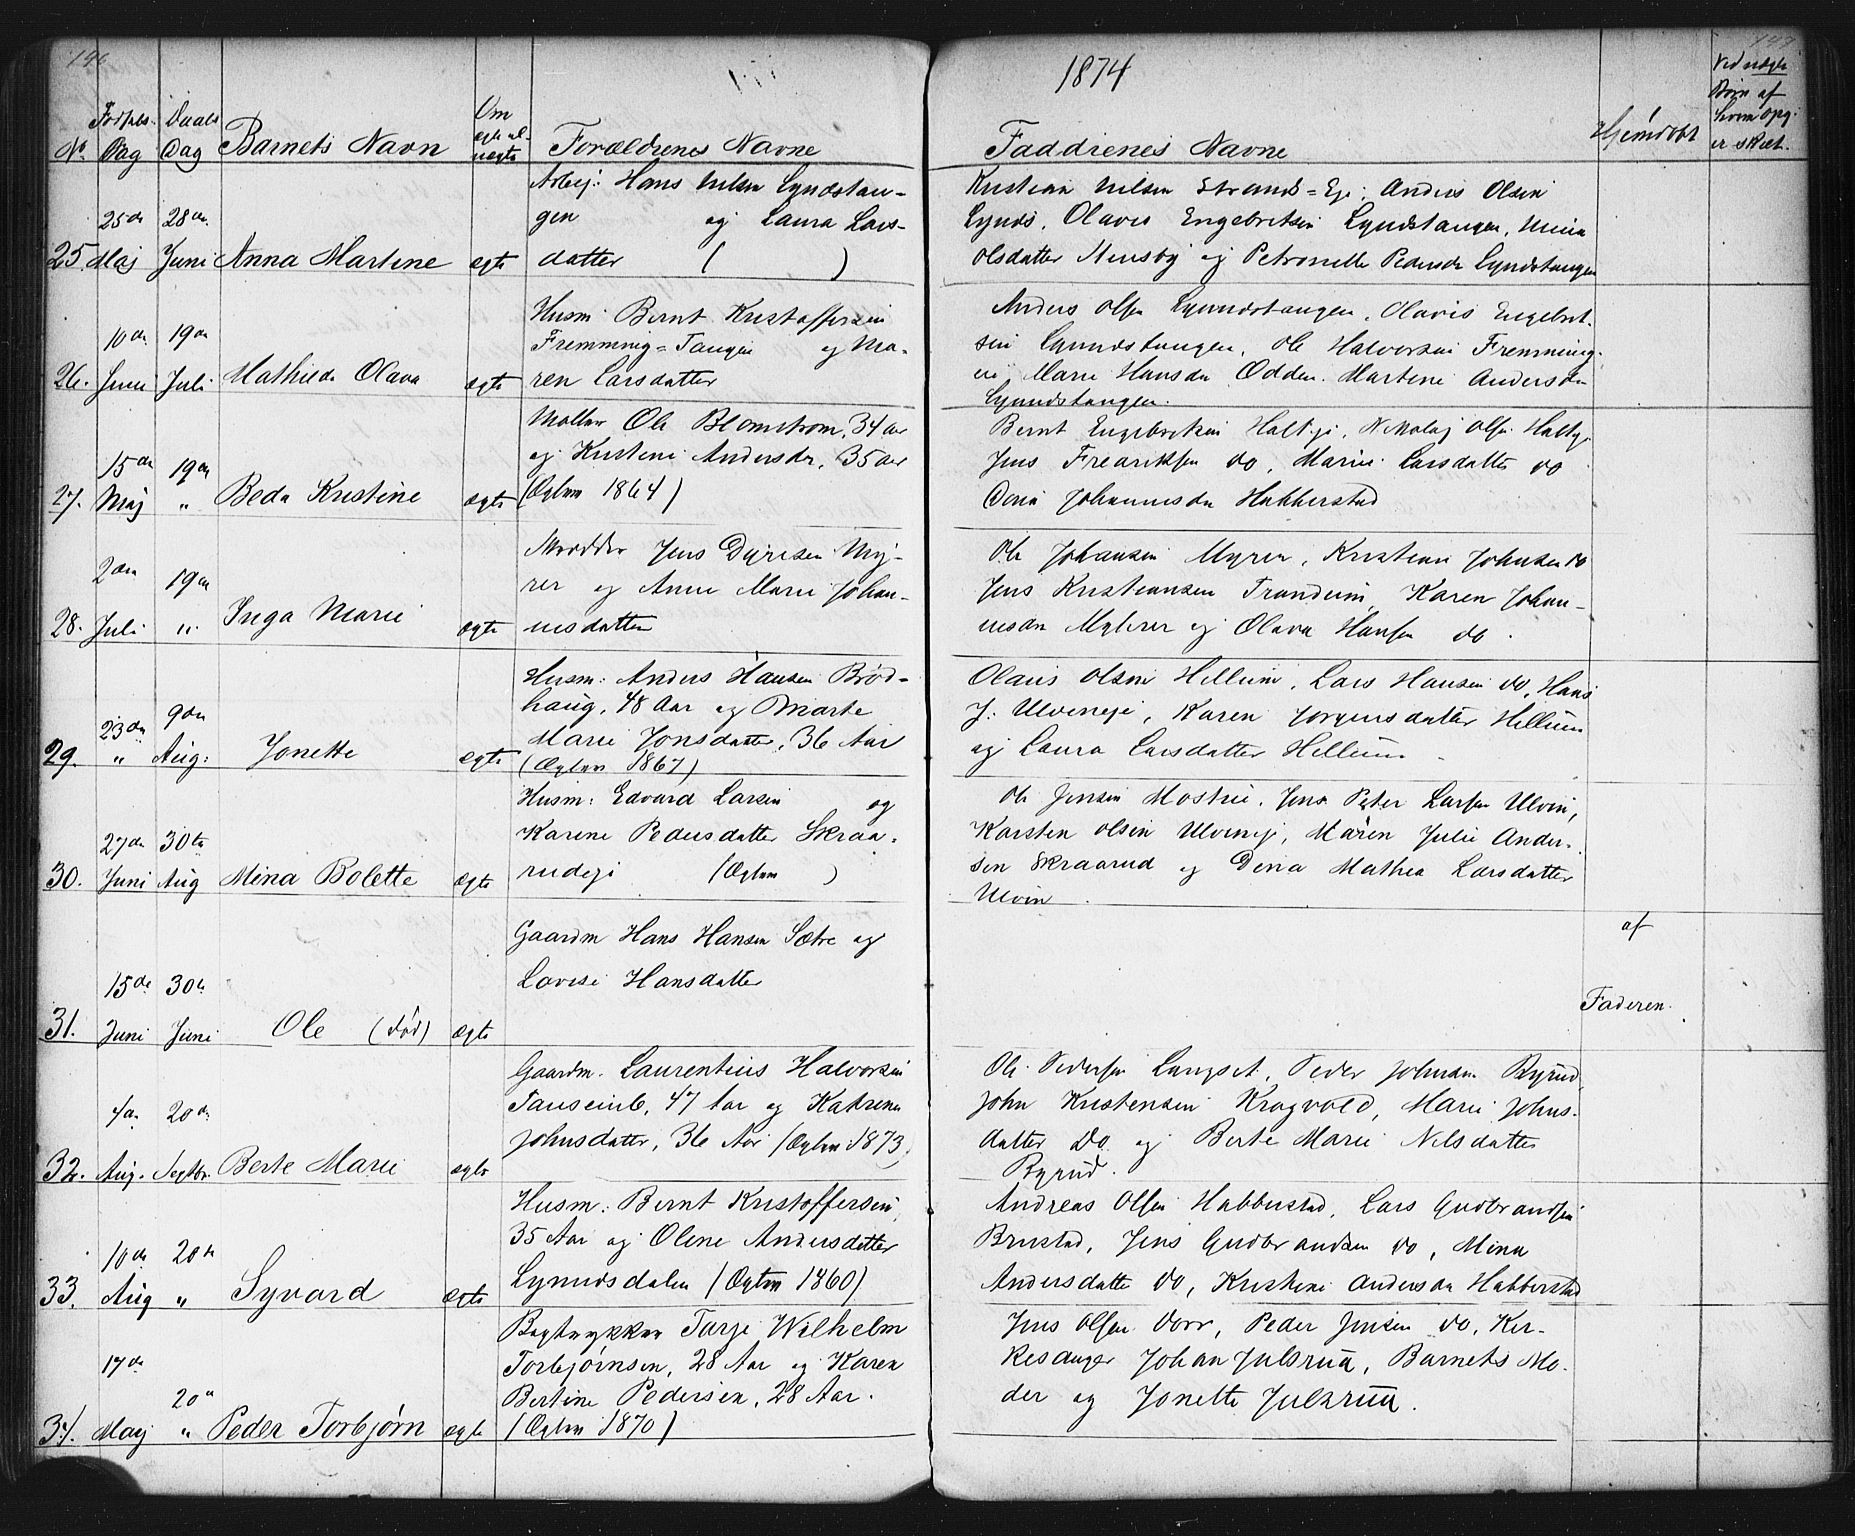 146
147
1874
No
Fødsels-
Dag
Daabs
Dag
Barnets Navn
Om
ægte el.
uægte
Forældrenes Navne
Faddrenes Navne
Hjemdøbt
Ved uægte
Børn af
hvem opg.
er skeet.
25.
25de
Maj
28de
Juni
Anna Martine
ægte
Arbej: Hans Nilsen Lyndstan-
gen og Laura Lars-
datter ( )
Kristian Nilsen Strands-Eje. Anders Olsen
Lynds. Olaves Engebretsen Lyndstangen,
Olsdatter og Petronelle Pedersdr Lyndstangen
26.
10de
Juni
19de
Juli
Mathilde Olava
ægte
Husm: Bernt Kristoffersen
Fremming-Tangen og Ma-
ren Larsdatter
Anders Olsen Lyndstangen, Olavis Engebret-
sen Lyndstangen, Ole Halvorsen Fremming-
Marie Hansdr Odden. Martine Andersdr
Lyndstangen.
27.
15de
Maj
19de
"
Beda Kristine
ægte
Møller Ole Blomstrøm, 34 Aar
og Kristine Andersdr, 35 Aar
(Ægtev 1864)
Bernt Engebretsen Nikolaj Olsen
Jens Fredriksen do, Marie Larsdatter do
Johannesdr Habberstad
28.
2den
Juli
19de
"
Inga Marie
ægte
Jens Dyresen My-
rer og Anne Marie Johan-
nesdatter
Ole Johansen Myrer, Kristian Johnsen do
Jens Kristiansen Trandum, Karen Johan-
nesdr Myhrer og Olava Hansen do.
29.
23de
"
9de
Aug:
Jonette
ægte
Husm: Anders Hansen Brød-
haug, 48 Aar og Marte
Marie Jonsdatter, 36 Aar
(Ægtev 1867)
Olaus Olsen Hellum, Lars Hansen do, Hans
J: Ulveneje, Karen Jørgensdatter Hellum
og Laura Larsdatter Hellum.
30.
27de
Juni
30te
Aug
Mina Bolette
ægte
Husm: Edvard Larsen og
Karine Pedersdatter Skraa-
rudeje (Ægtev )
Ole Jensen Mostue, Jens Peter Larsen Ulvin,
Karsten Olsen Ulvenej, Maren Julie Ander-
sen Skraarud og Dina Mathea Larsdatter
Ulvin.
31.
15de
Juni
30te
Juni
Ole (død)
ægte
Gaardm Hans Hansen Sætre og
Lovise Hansdatter
af
Faderen.
32.
4de
Aug.
20de
Septbr.
Berte Marie
ægte
Gaardm. Laurentius Halvorsen
47 Aar og Katrine
Johnsdatter, 36 Aar (Ægtev 1873)
Ole Pedersen Langset, Peder Johnsen Byrud,
John Kristensen Kragvold, Marie Johns-
datter do og Berte Marie Nilsdatter
Byrud.
33.
10de
Aug
20de
"
Syvard
ægte
Husm: Bernt Kristoffersen,
35 Aar og Oline Andersdatter
Lynnesdalen (Ægtev 1860)
Andreas Olsen Habberstad, Lars Gudbrandsen
Brustad, Jens Gudbrandsen do, Mina
Andersdatter do, Kristine Andersdr Habberstad
34.
17de
Maj
20de
"
Peder Torbjørn
ægte
Bogtrykker Tarje Wilhelm
Torbjørnsen, 28 Aar og Karen
Bertine Pedersen, 28 Aar.
(Ægtev 1870)
Jens Olsen Dorr, Peder Jensen do, Kir-
kesanger Johan Julsrud, Barnets Mo-
der og Jonette Julsrud.